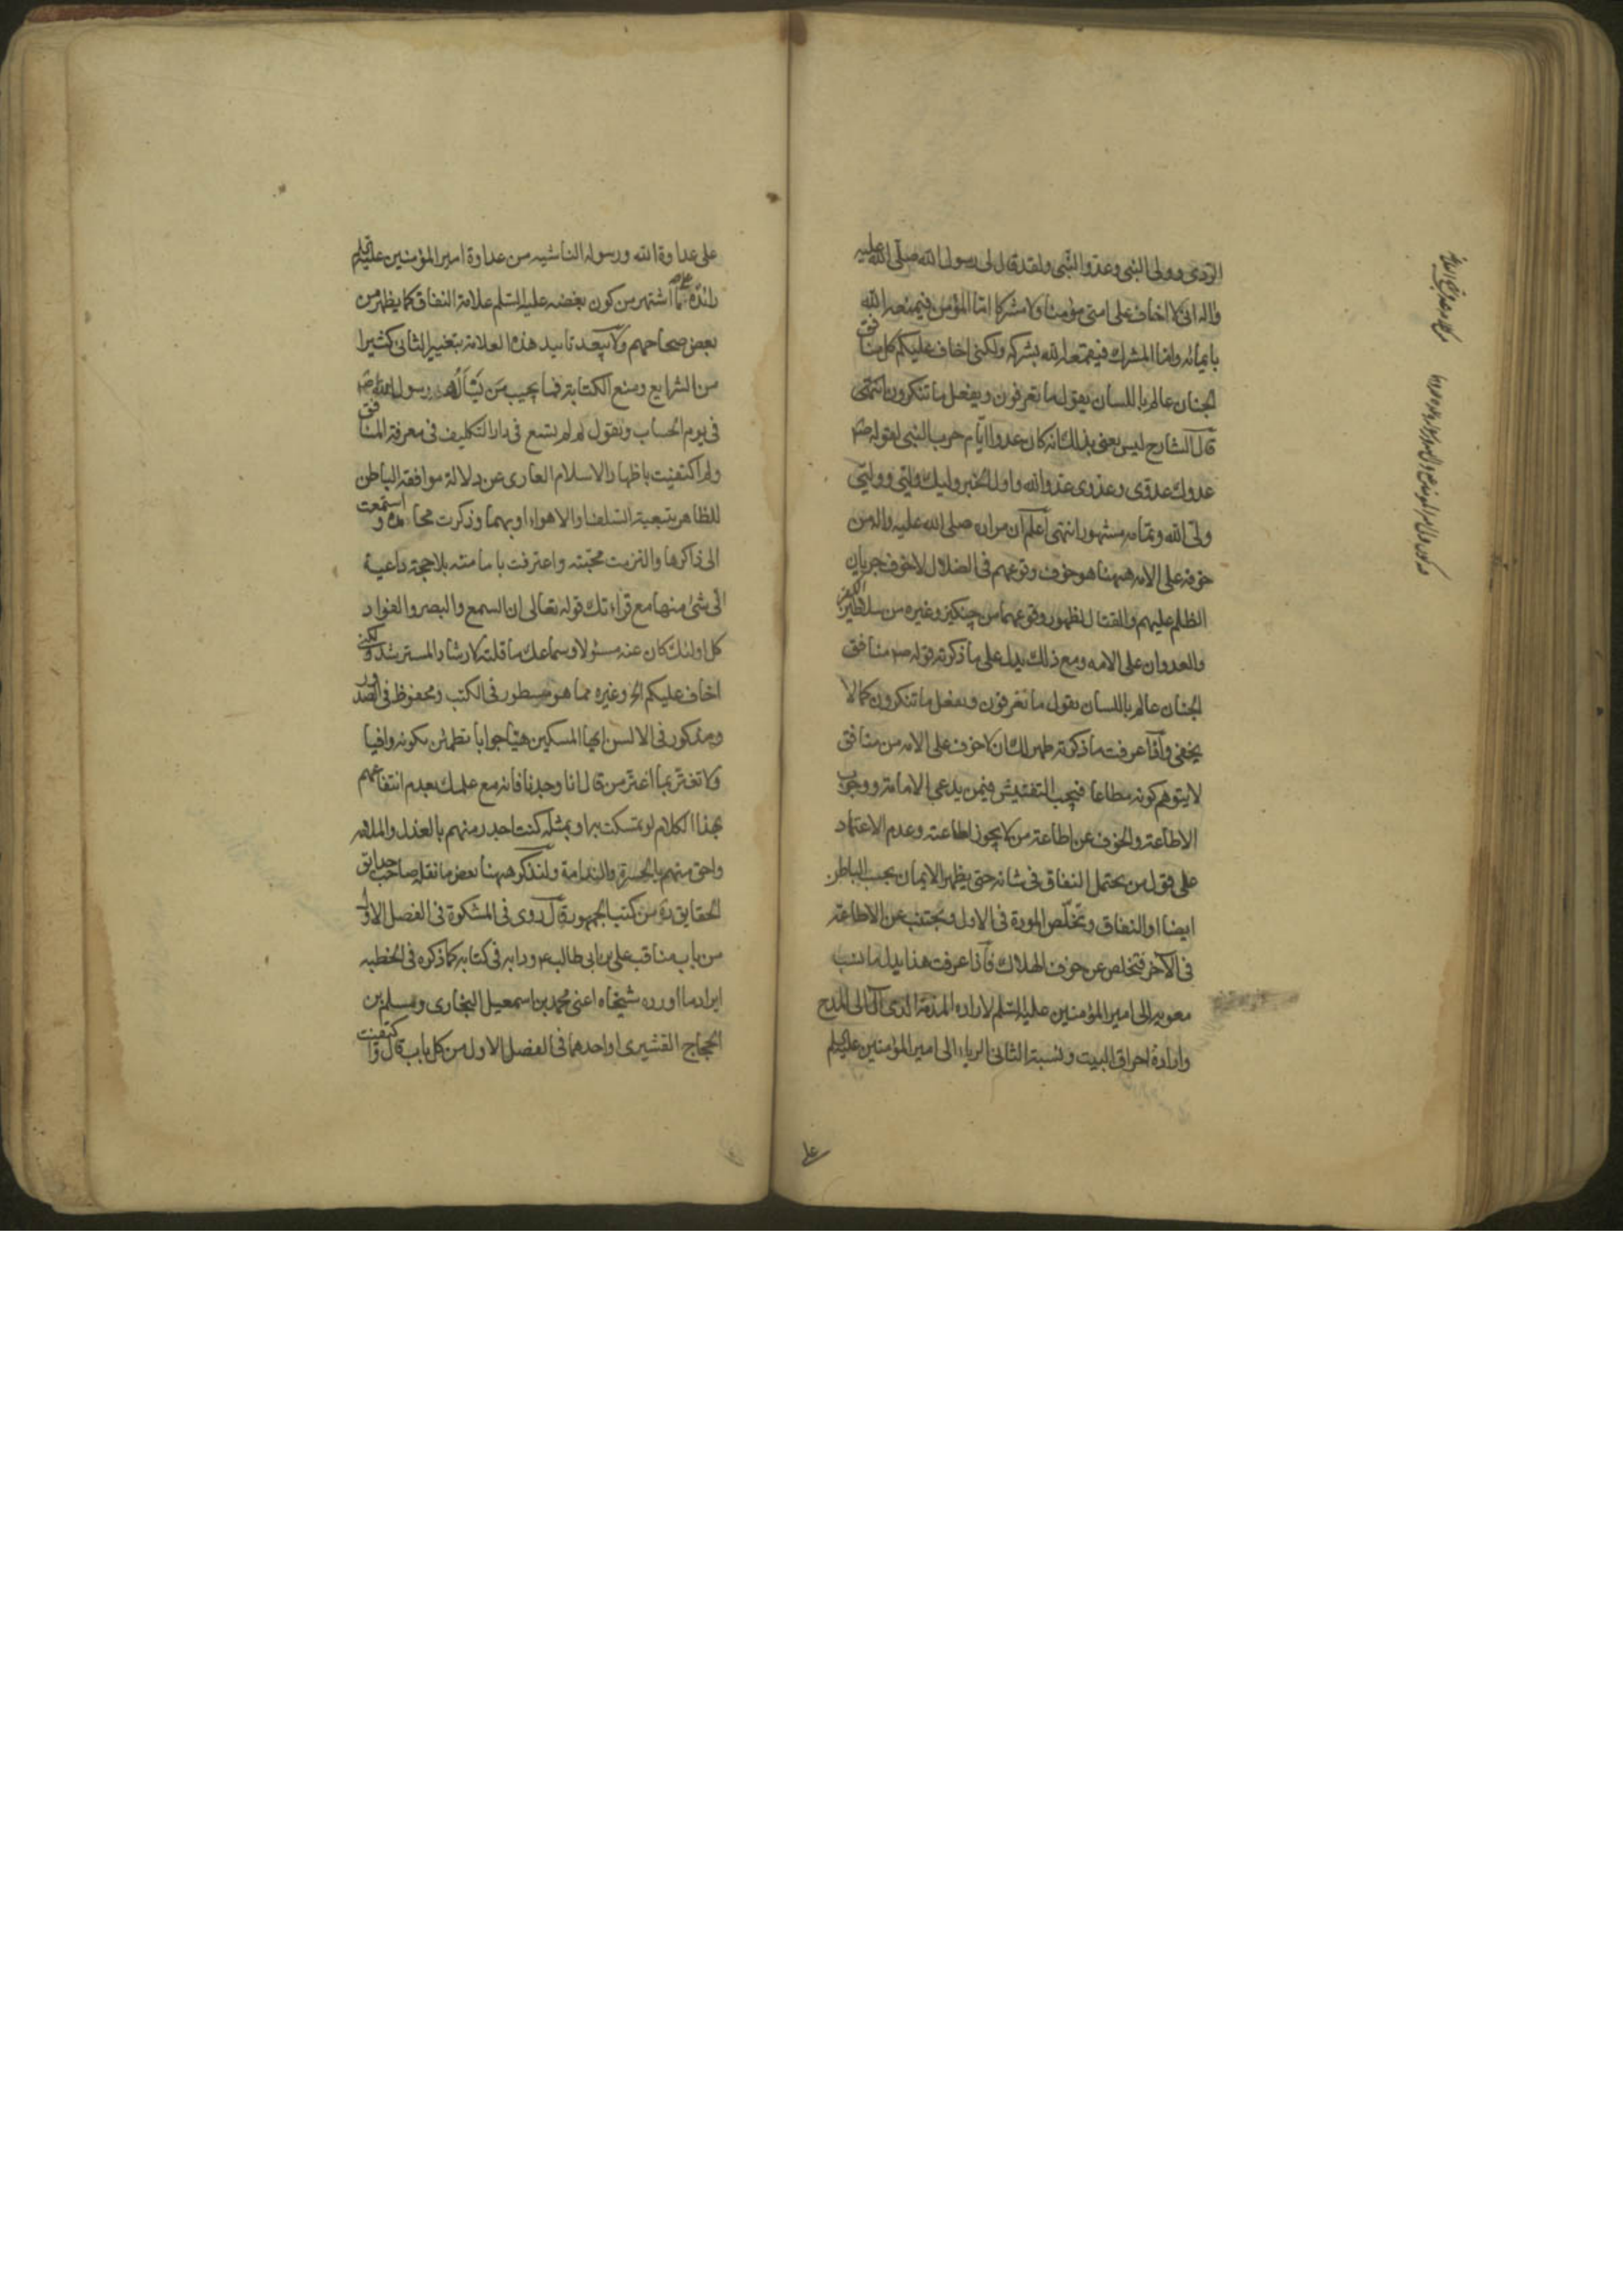 الردى وولى النبى وعدو النبى ولقد قال لى رسول الله صلى الله عليه
واله انى لا اخاف على امتى مؤمنا ولا مشركا اما المؤمن فيمنعه الله
بايمانه واما المشرك فيقمعه الله بشركه ولكنى اخاف عليكم كل منافق
الجنان عالم باللسان يقول ما تعرفون ويفعل ما تنكرون انتهى
قال الشارح ليس يعنى بذلك انه كان عدوا ايام حرب النبى لقوله ص
عدوك عدوى وعدوى عدو الله واول الخبر وليك وليى ووليى
ولى الله وتمامه مشهور انتهى اعلم ان مراده صلى الله عليه واله من
خوفه على الامه ههنا هو خوف وقوعهم فى الضلال لا خوف جريان
الظلم عليهم والقتال لظهور وقوعهما من چنكيز وغيره من سلاطين الكفر
والعدوان على الامه ومع ذلك يدل على ما ذكرته قوله ص منافق
الجنان عالم باللسان يقول ما تعرفون ويفعل ما تنكرون كما لا
يخفى واذا عرفت ما ذكرته ظهر لك ان لا خوف على الامه من منافق
لا يتوهم كونه مطاعا فيجب التفتيش فيمن يدعى الامامة ووجوب
الاطاعة والخوف عن اطاعة من لا يجوز اطاعته وعدم الاعتماد
على قول من يحتمل النفاق فى شانه حتى يظهر الايمان بحسب الباطن
ايضا او النفاق وتخلص المودة فى الاول ويجتنب عن الاطاعة
فى الآخر فتخلص عن خوف الهلاك فاذا عرفت هذا يدل ما نسب
معويه الى امير المؤمنين عليه السلم لارادة المذمة الذى آل الى المدح
وارادة احراق البيت ونسبة الثانى الرياء الى امير المؤمنين عليه السلم
على
على عداوة الله ورسوله الناشيه من عداوة امير المؤمنين عليه السلم
زائدة على ما اشتهر من كون بغضه عليه السلم علامة النفاق كما يظهر من
بعض صحاحهم ولا يبعد تاييد هذه العلامة بتغيير الثانى كثيرا
من الشرايع ومنع الكتابة فما يجيب من يسأله رسول الله ص
فى يوم الحساب ويقول له لم لم تسع فى دار التكليف فى معرفة المنافق
ولم اكتفيت باظهار الاسلام العارى عن دلالة موافقة الباطن
للظاهر بتبعية السلف او الاهواء او بهما وذكرت محامده واستمعت
الى ذاكرها والتزمت محبته واعترفت بامامته بلا حجة داعية
الى شئ منها مع قراءتك قوله تعالى ان السمع والبصر والفواد
كل اولئك كان عنه مسئولا وسماعك ما قلت لارشاد المسترشد ولكنى
اخاف عليكم الخ وغيره مما هو مسطور فى الكتب ومحفوظ فى الصدور
ومذكور فى الالسن ايها المسكين هيئ جوابا تطمئن بكونه وافيا
ولا تغتر بما اغتر من قال انا وجدنا فانه مع علمك بعدم انتفاعهم
بهذا الكلام لو تمسكت به او بمثله كنت اجدر منهم بالعذل والملامه
واحق منهم بالحسرة والندامة ولنذكر ههنا بعض ما نقله صاحب حدايق
الحقايق ره من كتب الجمهور قال روى فى المشكوة فى الفصل الاول
من باب مناقب على بن ابى طالب ع ودابه فى كتابه كما ذكره فى الخطبه
ايراد ما اورده شيخاه اعنى محمد بن اسمعيل البخارى ومسلم بن
الحجاج القشيرى او احدهما فى الفصل الاول من كل باب قال واكتفيت